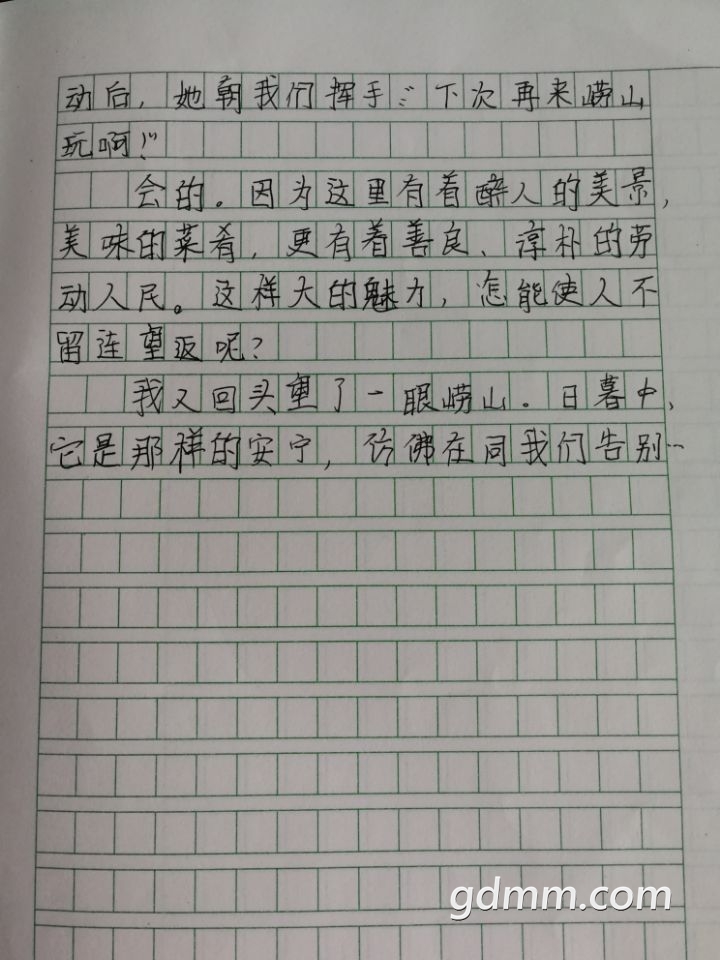 动后，她朝我们挥手：“下次再来崂山
玩啊！”
会的。因为这里有着醉人的美景，
美味的菜肴，更有着善良、淳朴的劳
动人民。这样大的魅力，怎能使人不
留连重返呢？
我又回头望了一眼崂山。日暮中，
它是那样的安宁，仿佛在同我们告别…
gdmm.com